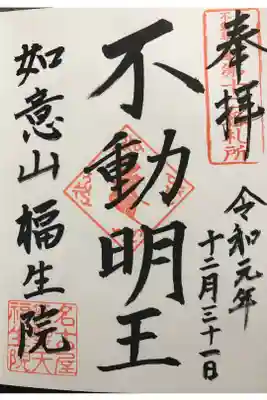 奉拝
令和元年
十二月三十一日
不動明王
如意山福生院
名古屋
大
福生院